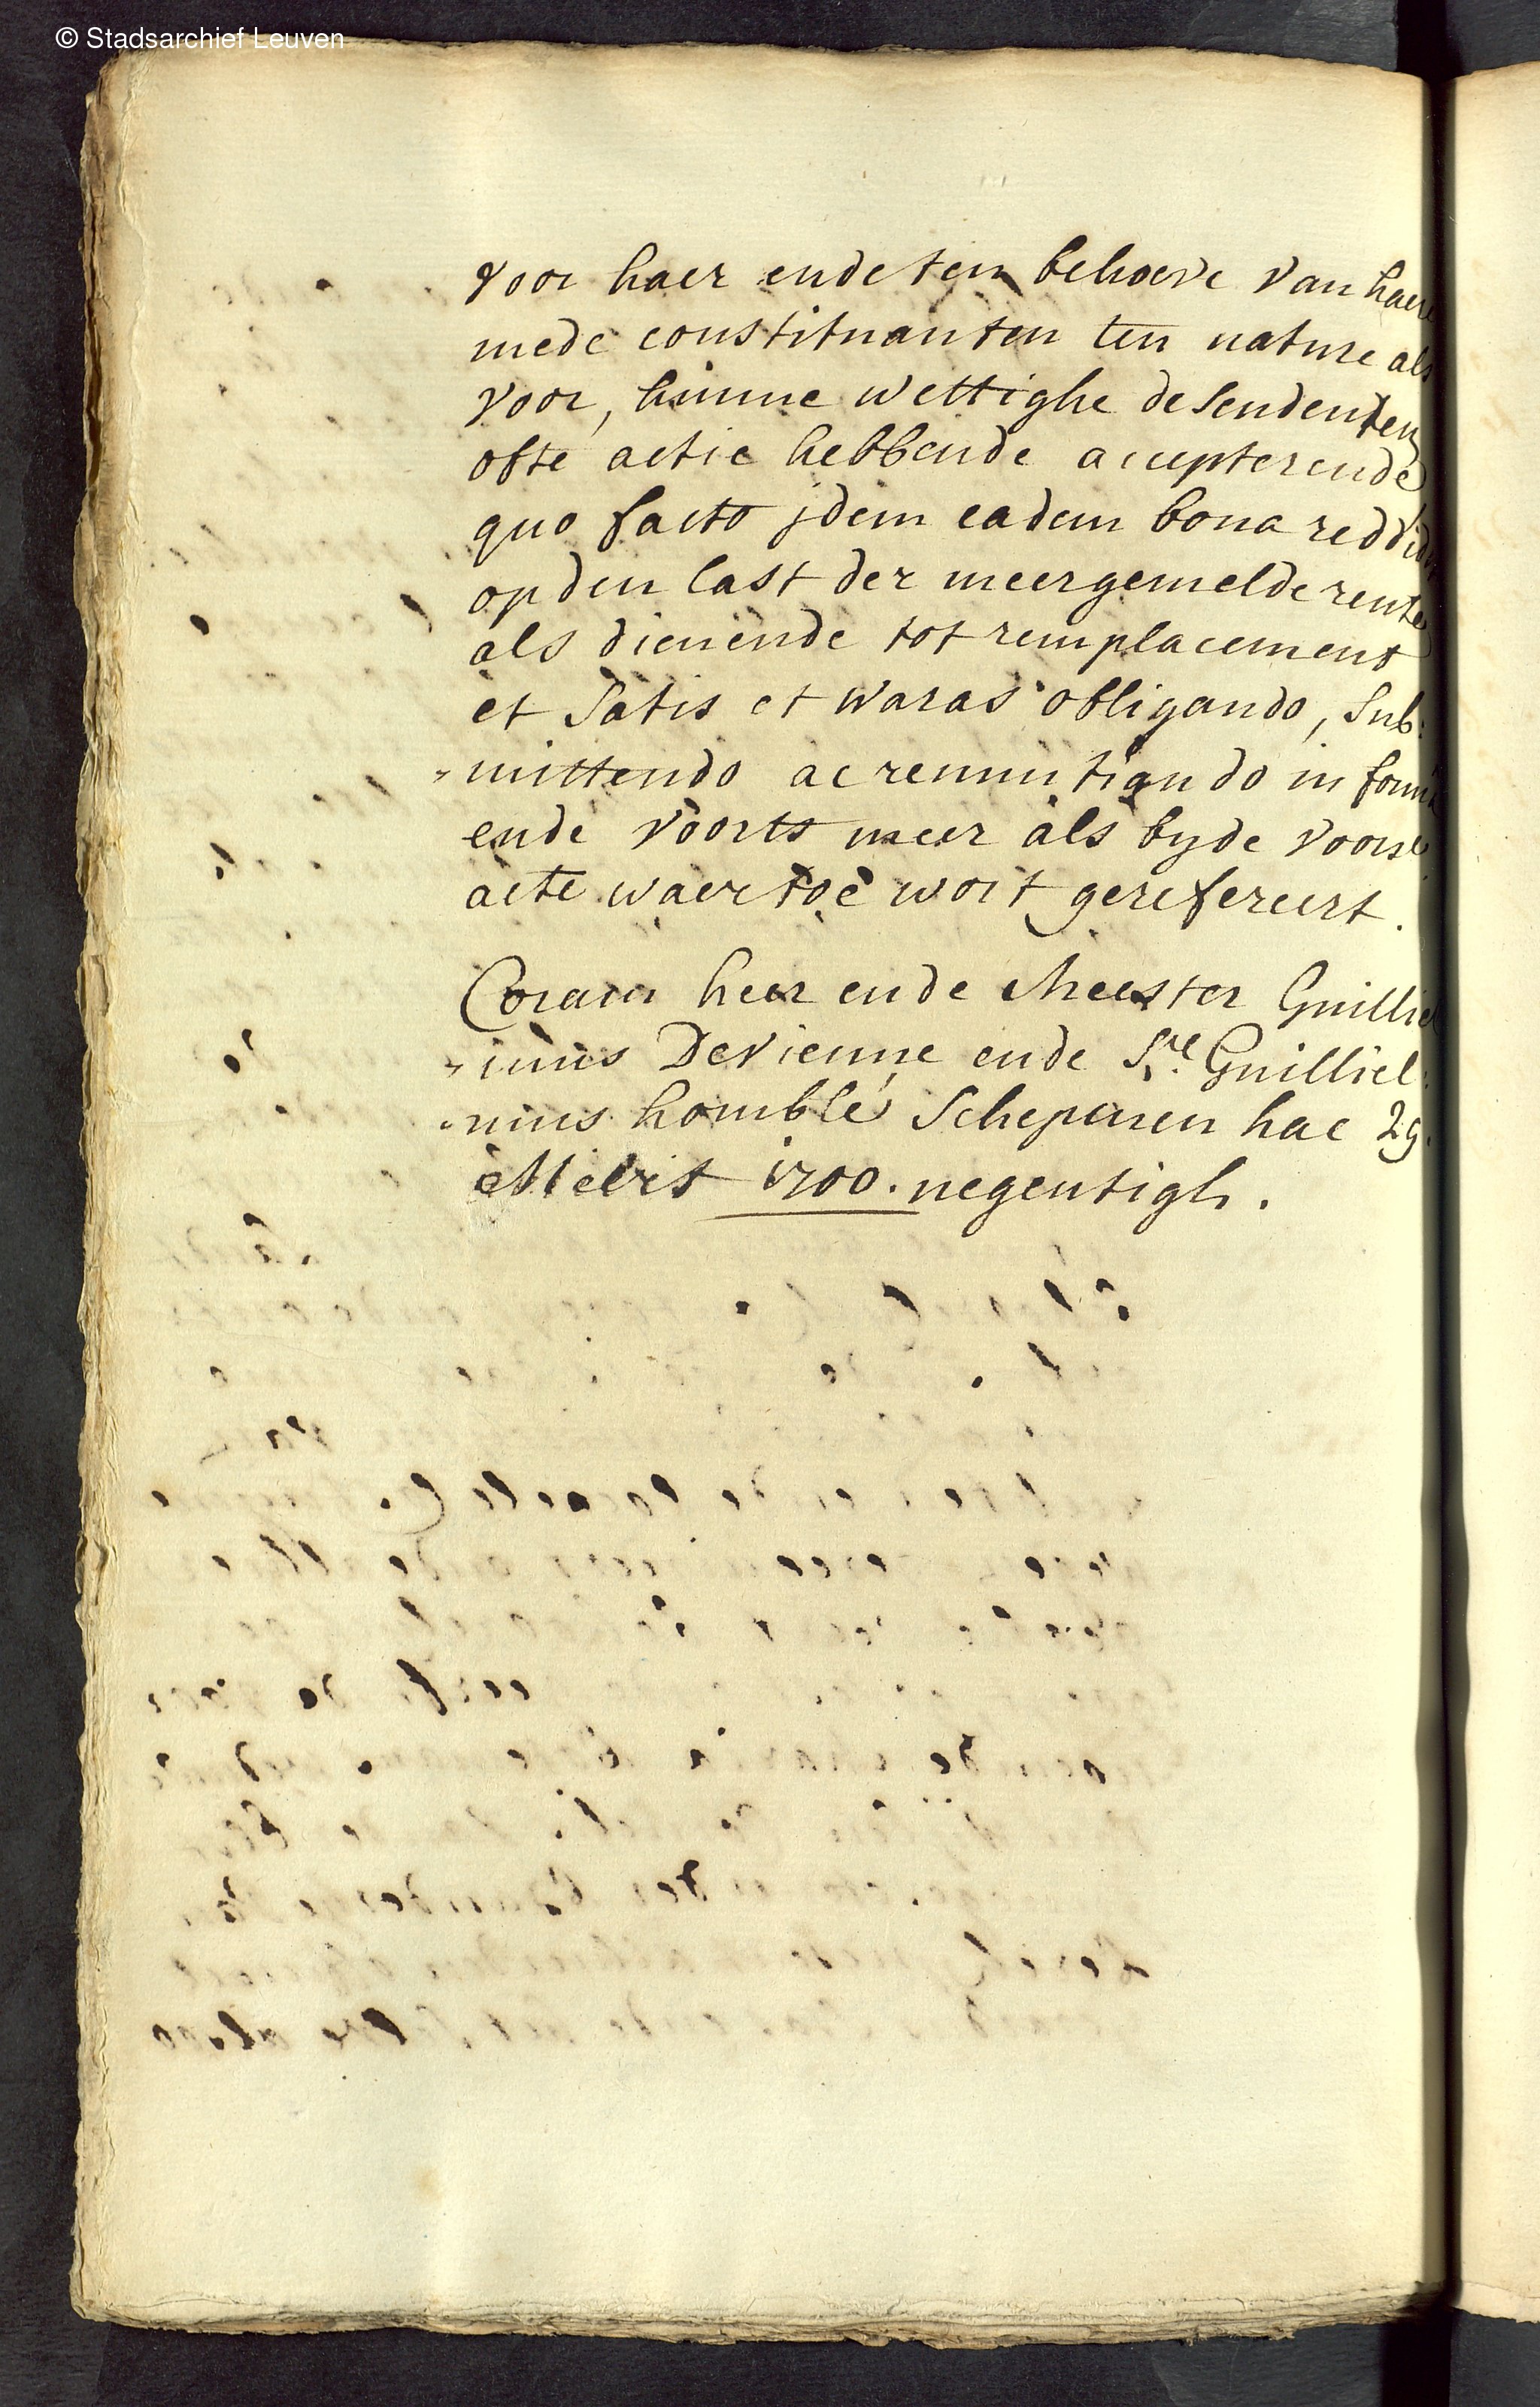 © Stadsarchief Leuven
voor haer ende ten behoeve van haere
mede constituanten ten nature als
voor, hunne wettighe desendenten
ofte actie hebbende accepterende
quo facto jdem eadem bona reddidit
op den last der meergemelde rente
als dienende tot remplacement
et satis et waras obligando, sub:
-mittendo ac renuntiando in forma
ende voorts meer als byde voorsc
acte waer toe wort gerefereert.
Coram heer ende Meester Guilliel
-imus Devienne ende Sre. Guilliel:
-mus homblé Schepenen hac 29.
Meert 1700. negentigh.